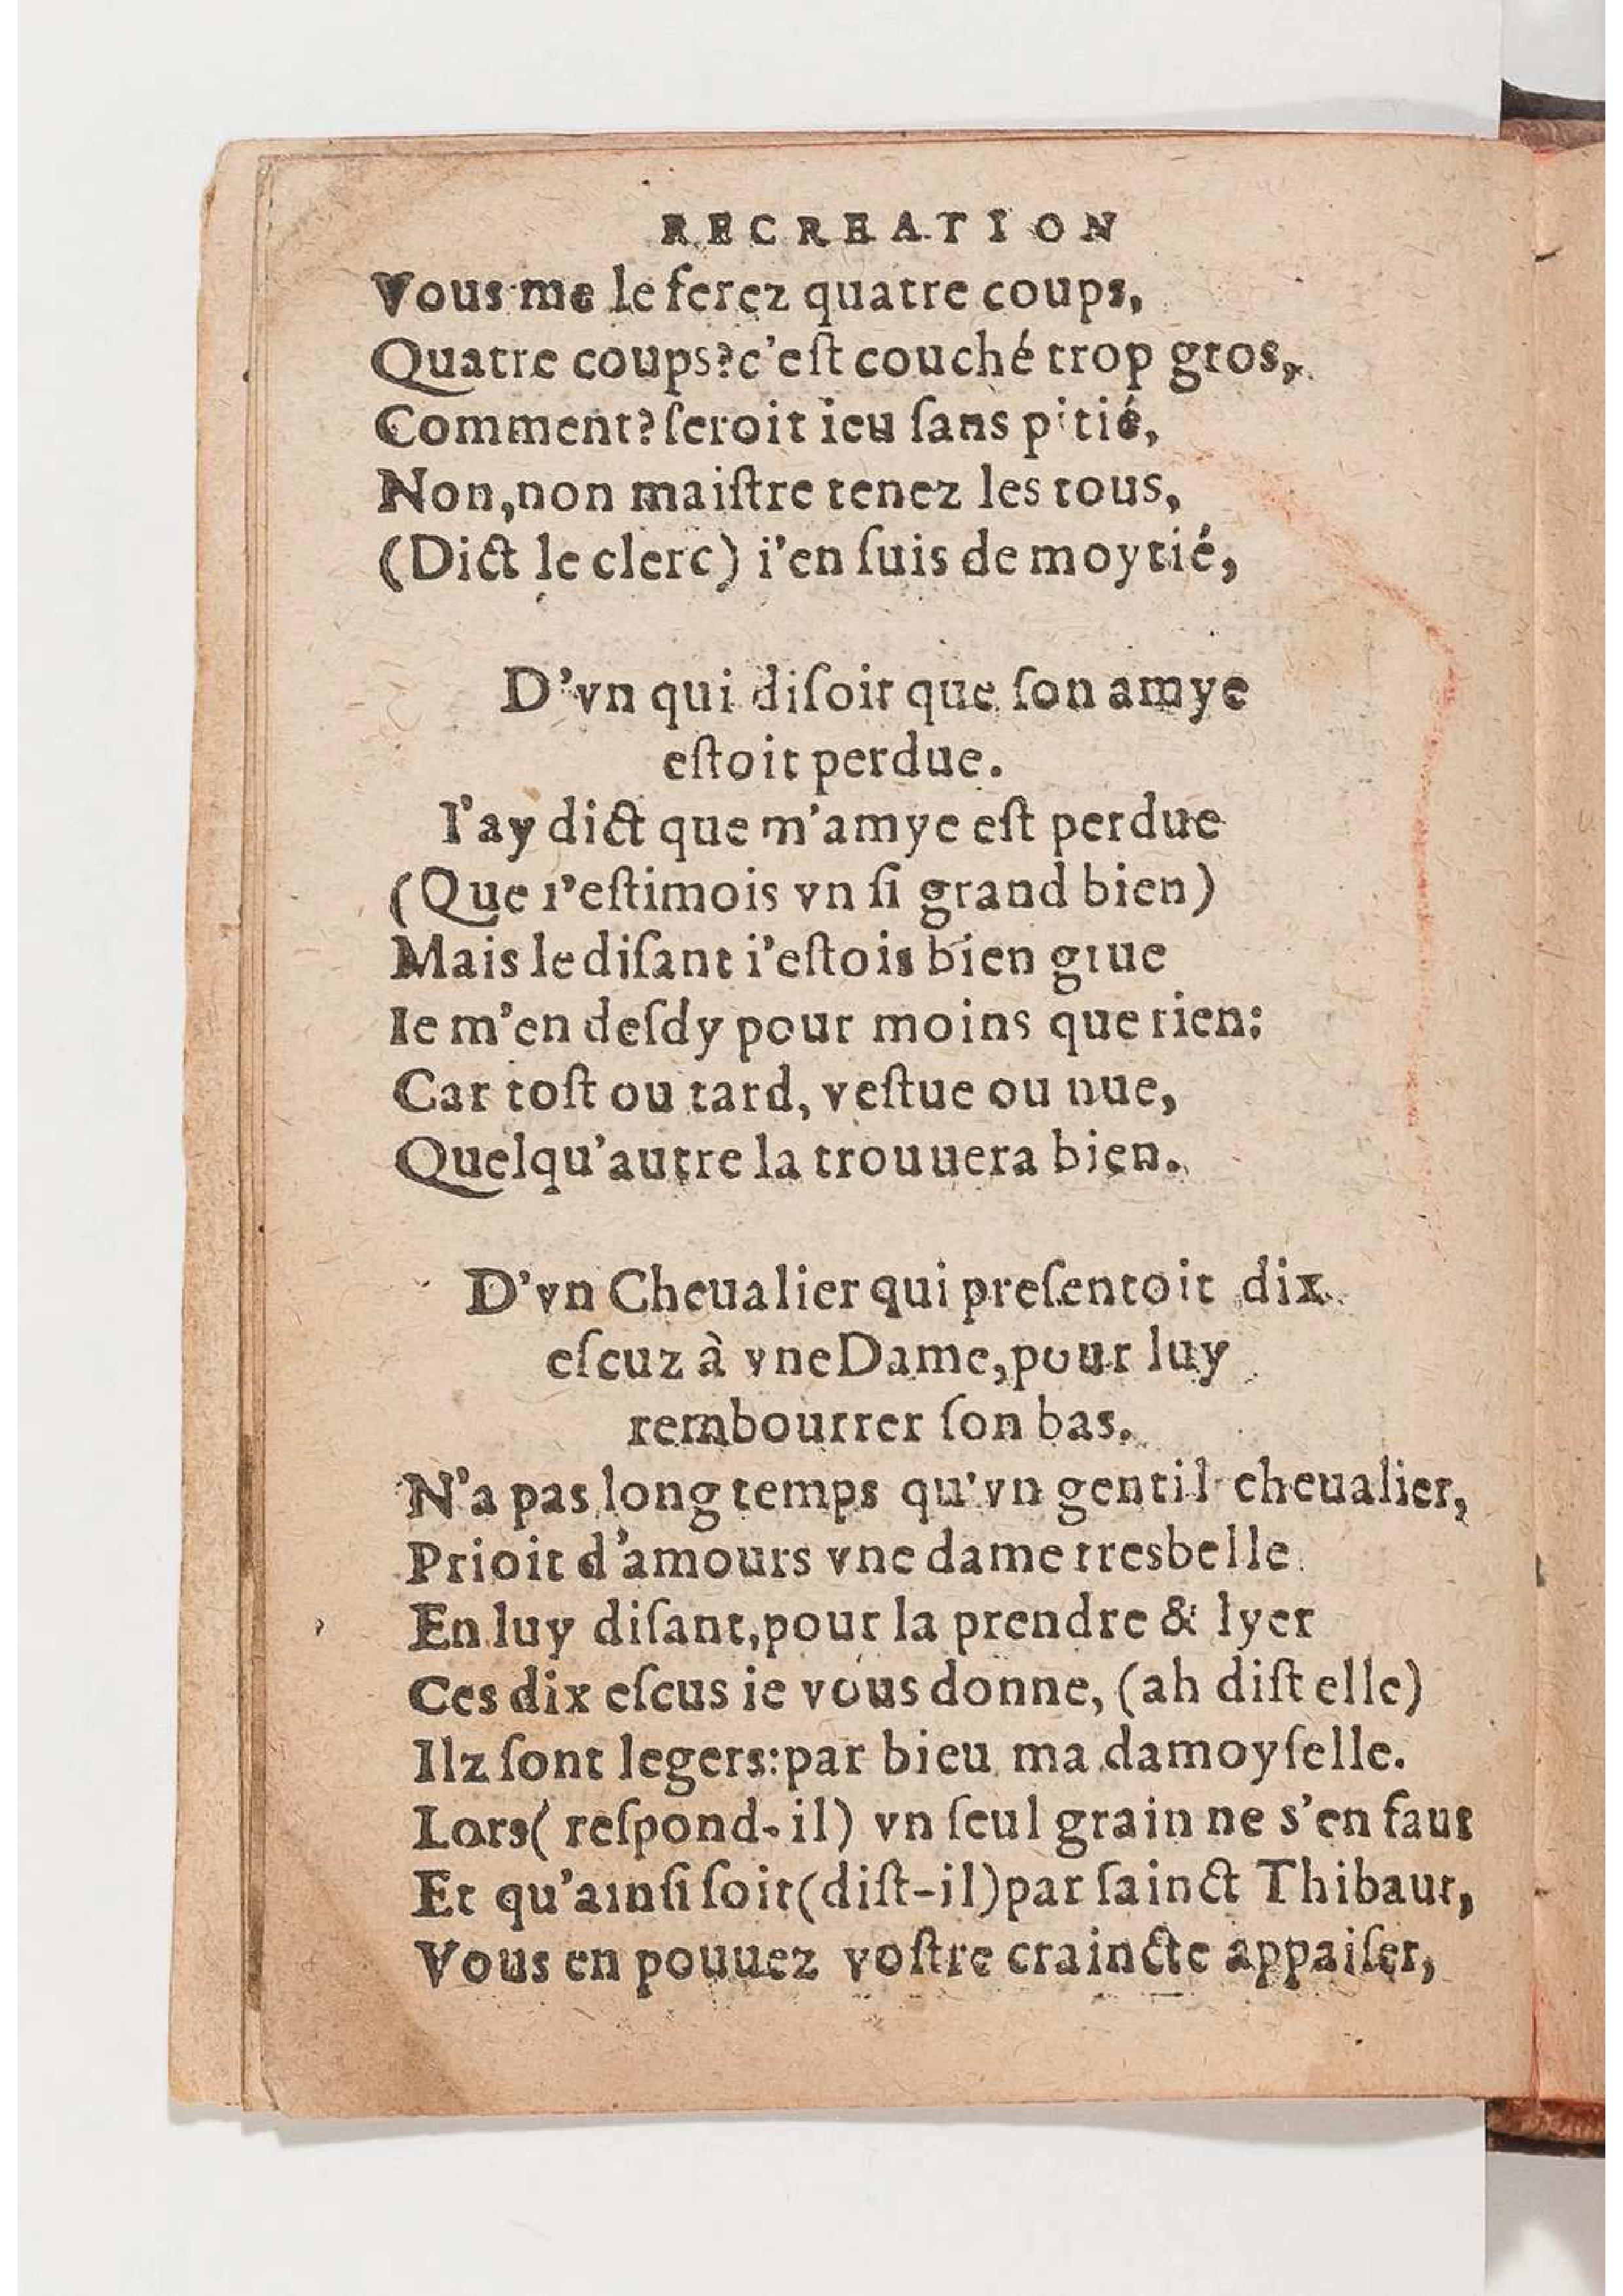 RECREATION
Vous me le ferez quatre coups,
Quatre coups?c'eſt couché trop gros,
Comment?ſeroit ieu ſans pitié,
Non,non maiſtre tenez les tous,
(Dict le clerc) i'en ſuis de moytié,
D'vn qui diſoit que ſon amye
eſtoit perdue.
I'ay dict que m'amye eſt perdue
(Que i'eſtimois vn ſi grand bien)
Mais le diſant i'eſtois bien grue
Ie m'en deſdy pour moins que rien:
Car toſt ou tard, veſtue ou nue,
Quelqu'autre la trouuera bien.
D'vn Cheualier qui preſentoit dix
eſcuz à vne Dame,pour luy
rembourrer ſon bas.
N'a pas long temps qu'vn gentil cheualier,
Prioit d'amours vne dame tresbelle
En luy diſant,pour la prendre & lyer
Ces dix eſcus ie vous donne, (ah diſt elle)
Ilz ſont legers:par bieu ma damoyſelle.
Lors( reſpond-il) vn ſeul grain ne s'en faut
Et qu'ainſi ſoit(diſt-il)par ſainct Thibaut,
Vous en pouuez voſtre craincte appaiſer,